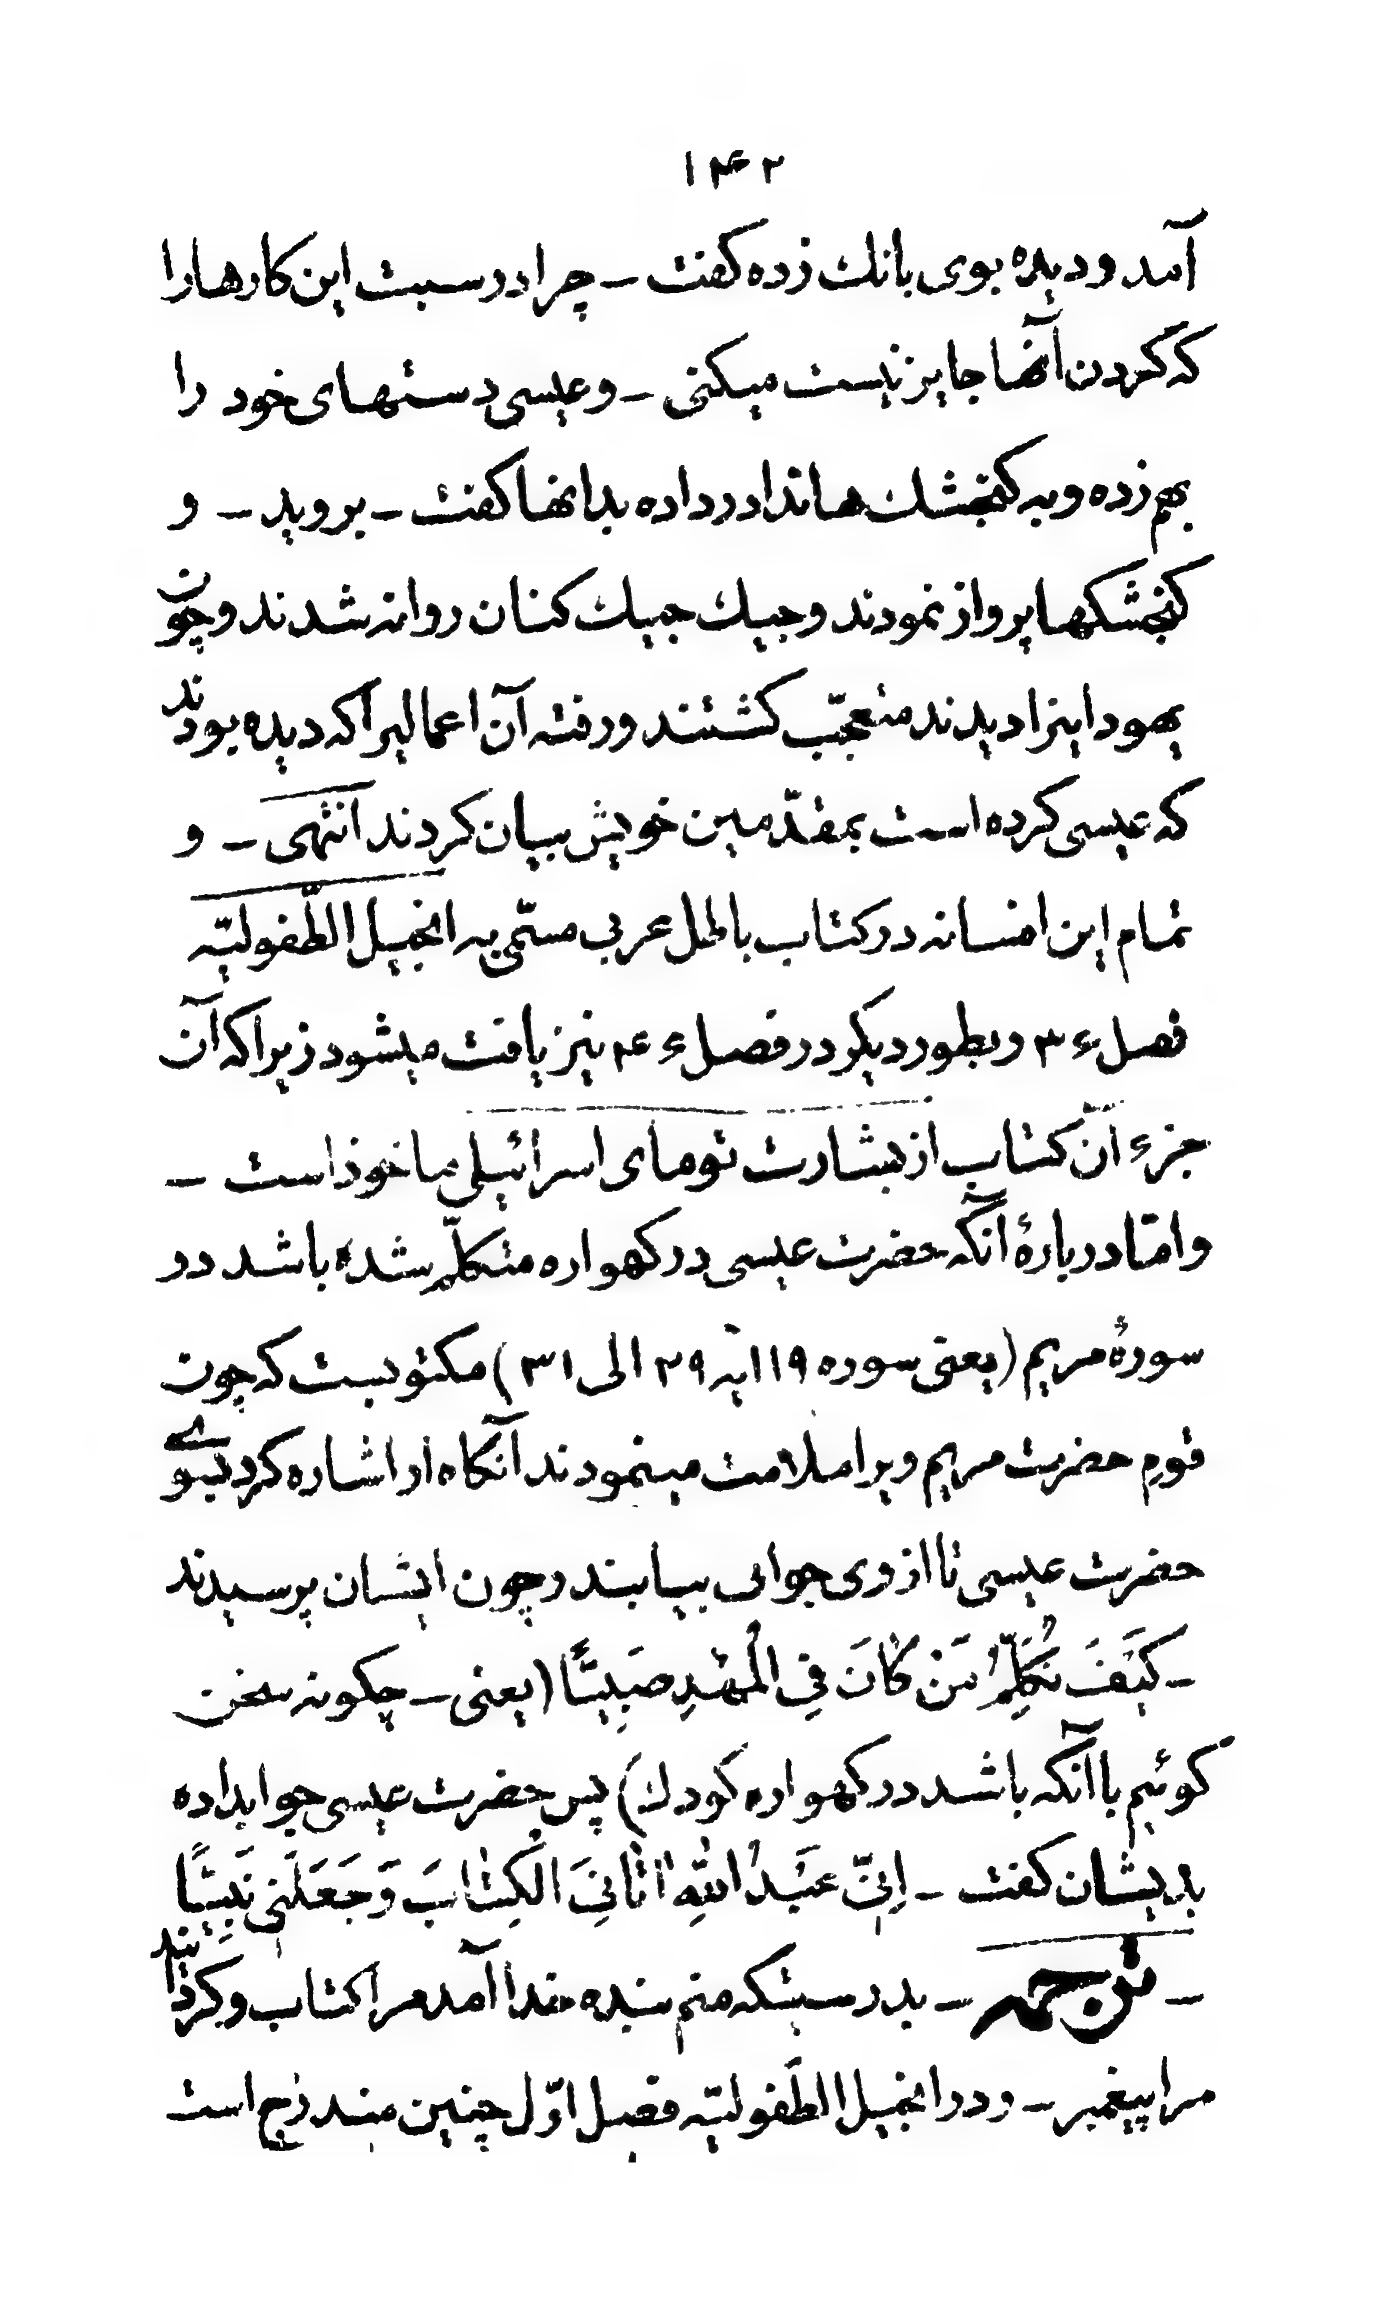 ۱۴۲
آمد و دیده بوی بانك زده کفت ـ چرا در سبت این کارها را
که کردن آنها جایز نیست میکنی ـ و عیسی دستهای خود را
بهم زده و به کنجشك ها ندا در داده بدانها کفت ـ بروید ـ و
کنجشکها پرواز نمودند و جیك جیك کنان روانه شدند و چون
یهود اینرا دیدند متعجّب کشتند و رفته آن اعمالیرا که دیده بودند
که عیسی کرده است بمقدّمین خویش بیان کردند انتهی ـ و
تمام این افسانه در کتاب باطل عربی مسمّی به انجیل الطّفولیّه
فصل ۳۶ و بطور دیکر در فصل ۴۶ نیز یافت میشود زیرا که آن
جزء آن کتاب از بشارت تومای اسرائیلی ماخوذ است ـ
و امّا در بارهٔ آنکه حضرت عیسی در کهواره متکلّم شده باشد در
سورهٔ مریم (یعنی سوره ۱۹ آیه ۲۹ الی ۳۱) مکتوبست که چون
قوم حضرت مریم ویرا ملامت مینمودند آنکاه او اشاره کرد بسوی
حضرت عیسی تا از وی جوابی بیابند و چون ایشان پرسیدند
ـ کَیْفَ نُکَلِّمُ مَنْ کَانَ فِی الْمَهْدِ صَبِیًّا (یعنی ـ چکونه سخن
کوئیم با آنکه باشد در کهواره کودك) پس حضرت عیسی جواب داده
بدیشان کفت ـ اِنّی عَبْدُ اللّٰهِ اٰتٰانِیَ الْکِتٰابَ وَ جَعَلَنی نَبِیًّا
ـ ترجمه ـ بدرستیکه منم بنده خدا آمد مرا کتاب و کردانید
مرا پیغمبر ـ و در انجیل الطّفولیّه فصل اوّل چنین مندرج است